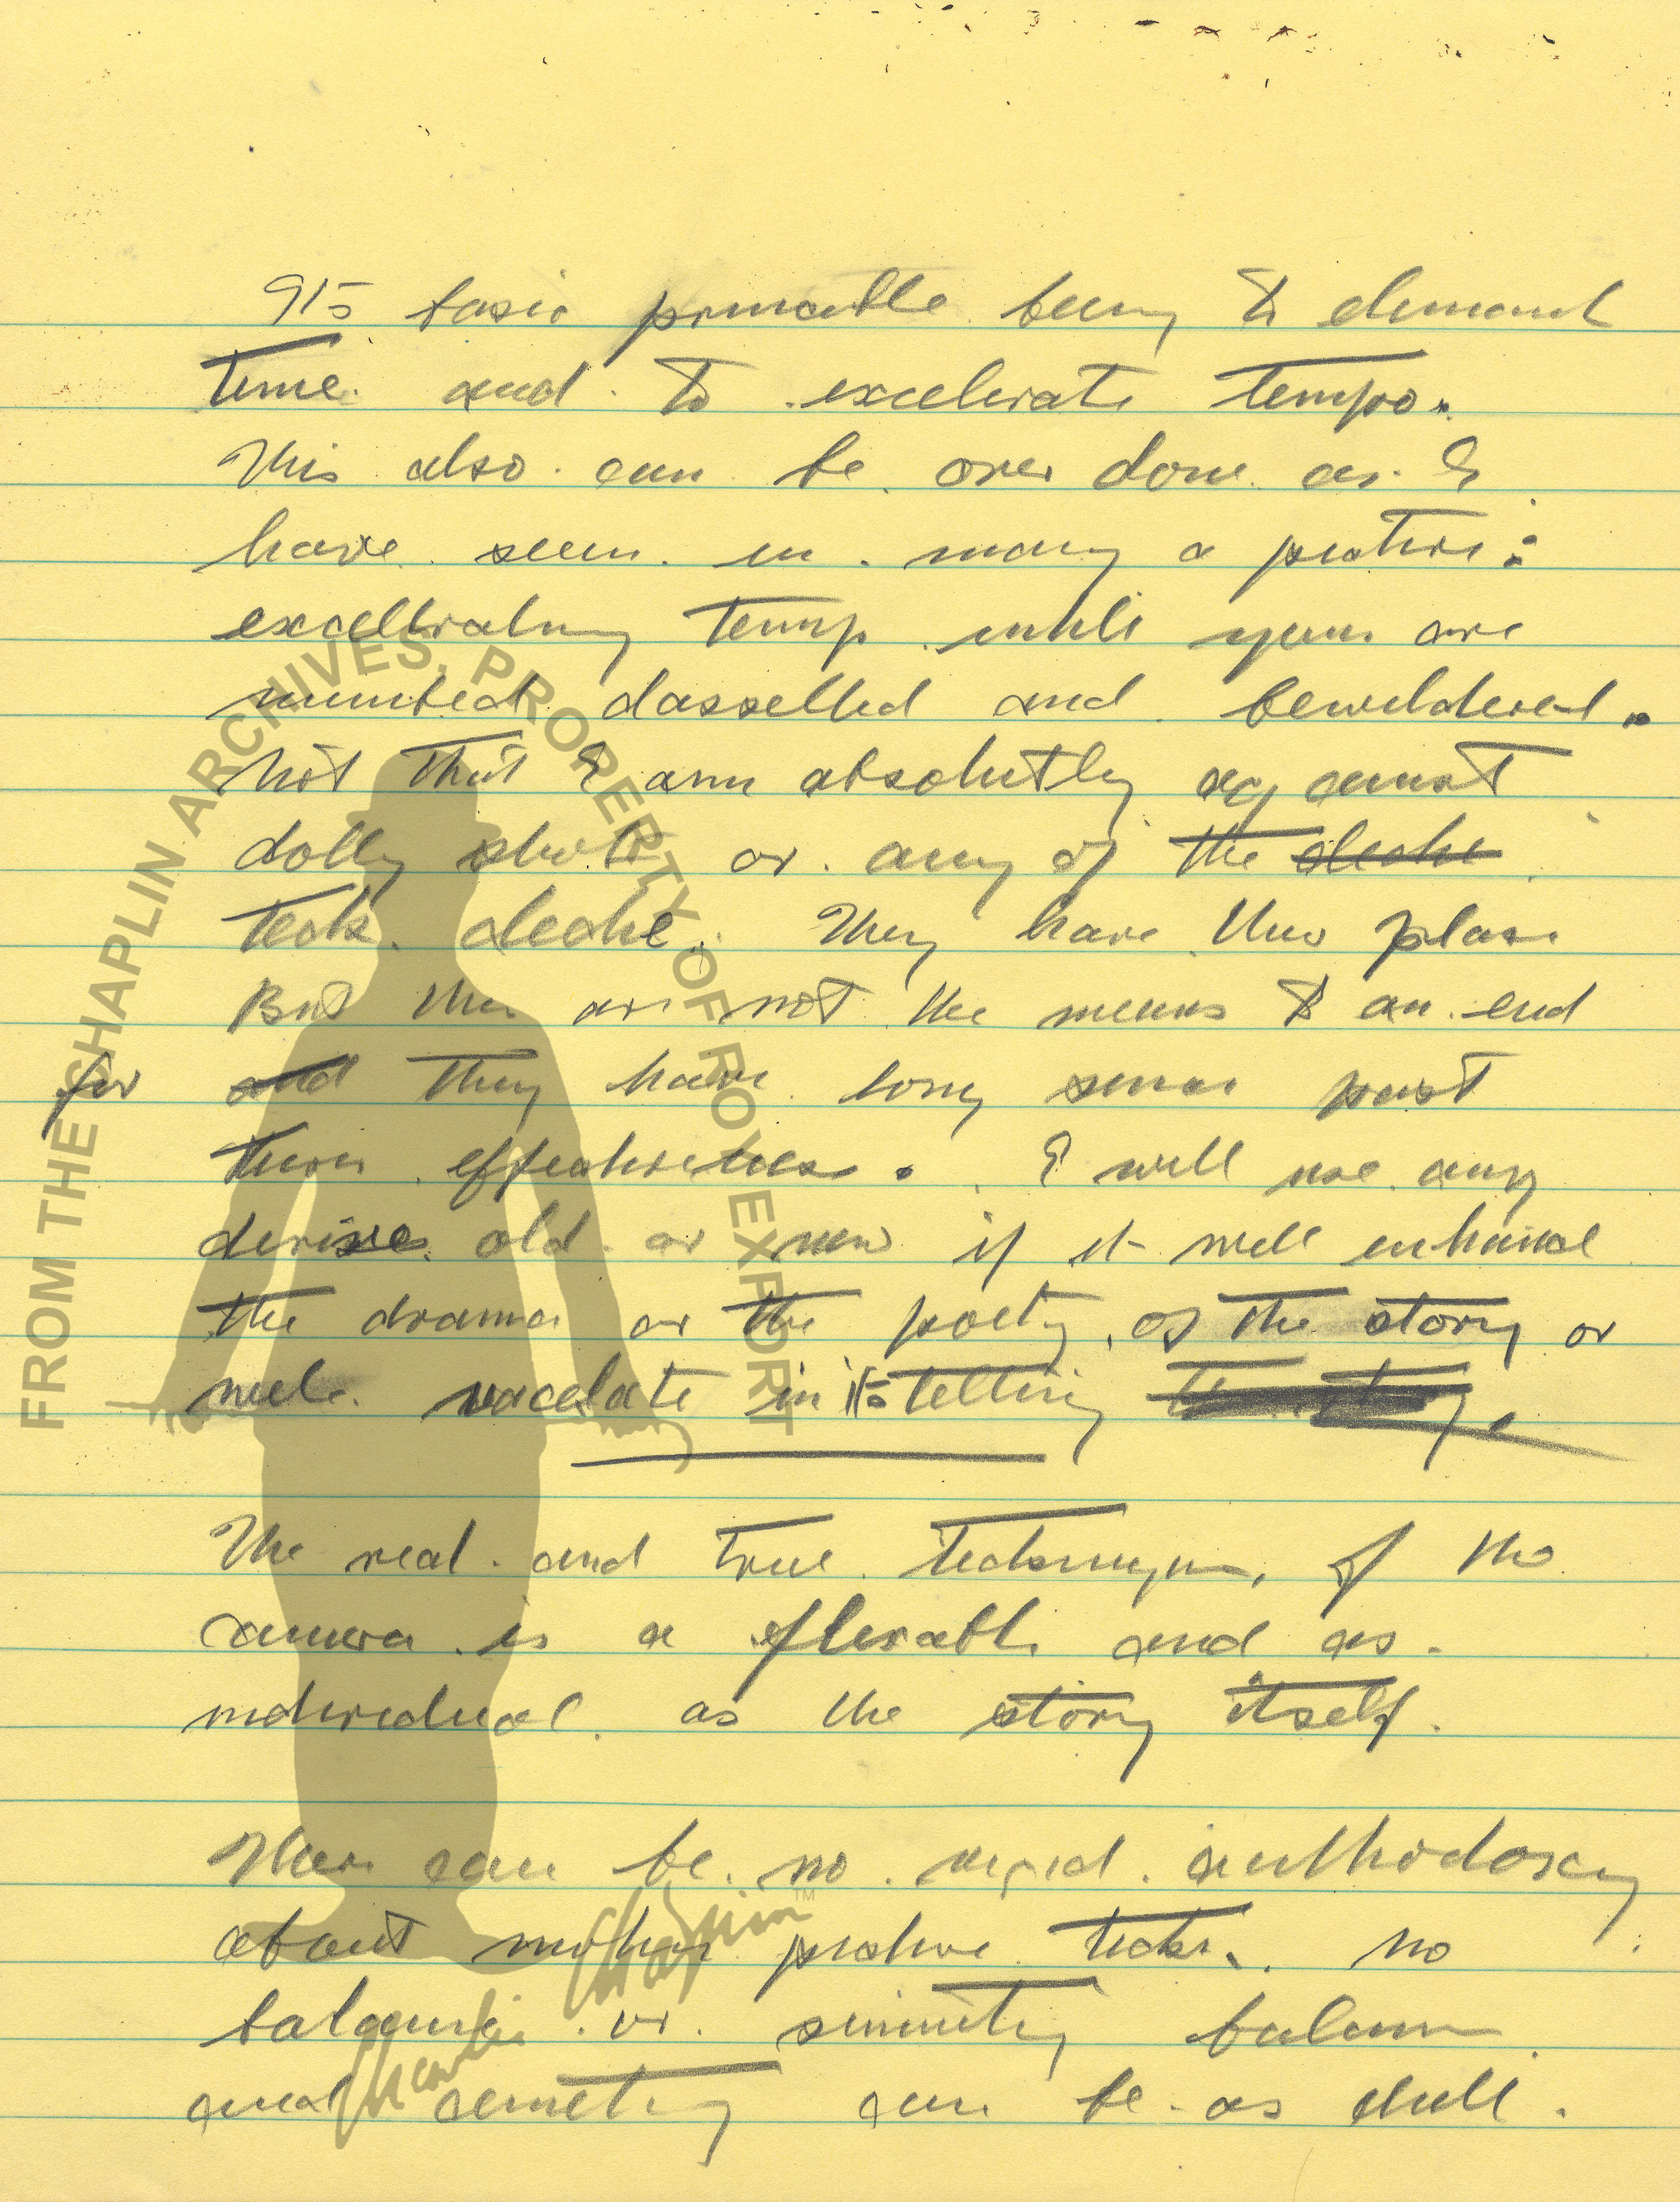 Its basic princable being to demand
time and to excelerate tempo.
This also can be over done as I
have seen in many a picture:
excellrating temp untill you are
numbed dasselled and bewildered.
Not that I am absolutly against
dolly shots or any of the cleche
tecks cleche. They have their place
But they are not the means to an end
for and they have long sence past
their effectiveness. I will use any
devise old or new if it will enhance
the drama or the poety of the story or
in its telling
The real and true of the
camera is a flexable and as
individual as the story itself.
There can be no rigid authodoxey
about motion picture tecks. no
balance or simmitry balance
and semetry can be as dull.
FROM THE CHAPLIN ARCHIVES, PROPERTY OF ROY EXPORT
Charlie Chaplin™